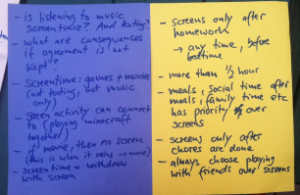 - is listening to music
screentime? And texting?
- what are consequences
if agreement is not
kept?
- Screentime: games + movies
(not texting, not music
only)
- screen activity can connect
to (playing minecraft
together)
- if movie, then no screens
(this is when it rains → movie)
- screentime → withdraw
with screen
- screens only after
homework
→ any time, before
bedtime
- more than 1/2 hour
- meals, social time after
meals, family time etc
has priority over
screens
- screens only after
chores are done
- always choose playing
with friends over screens